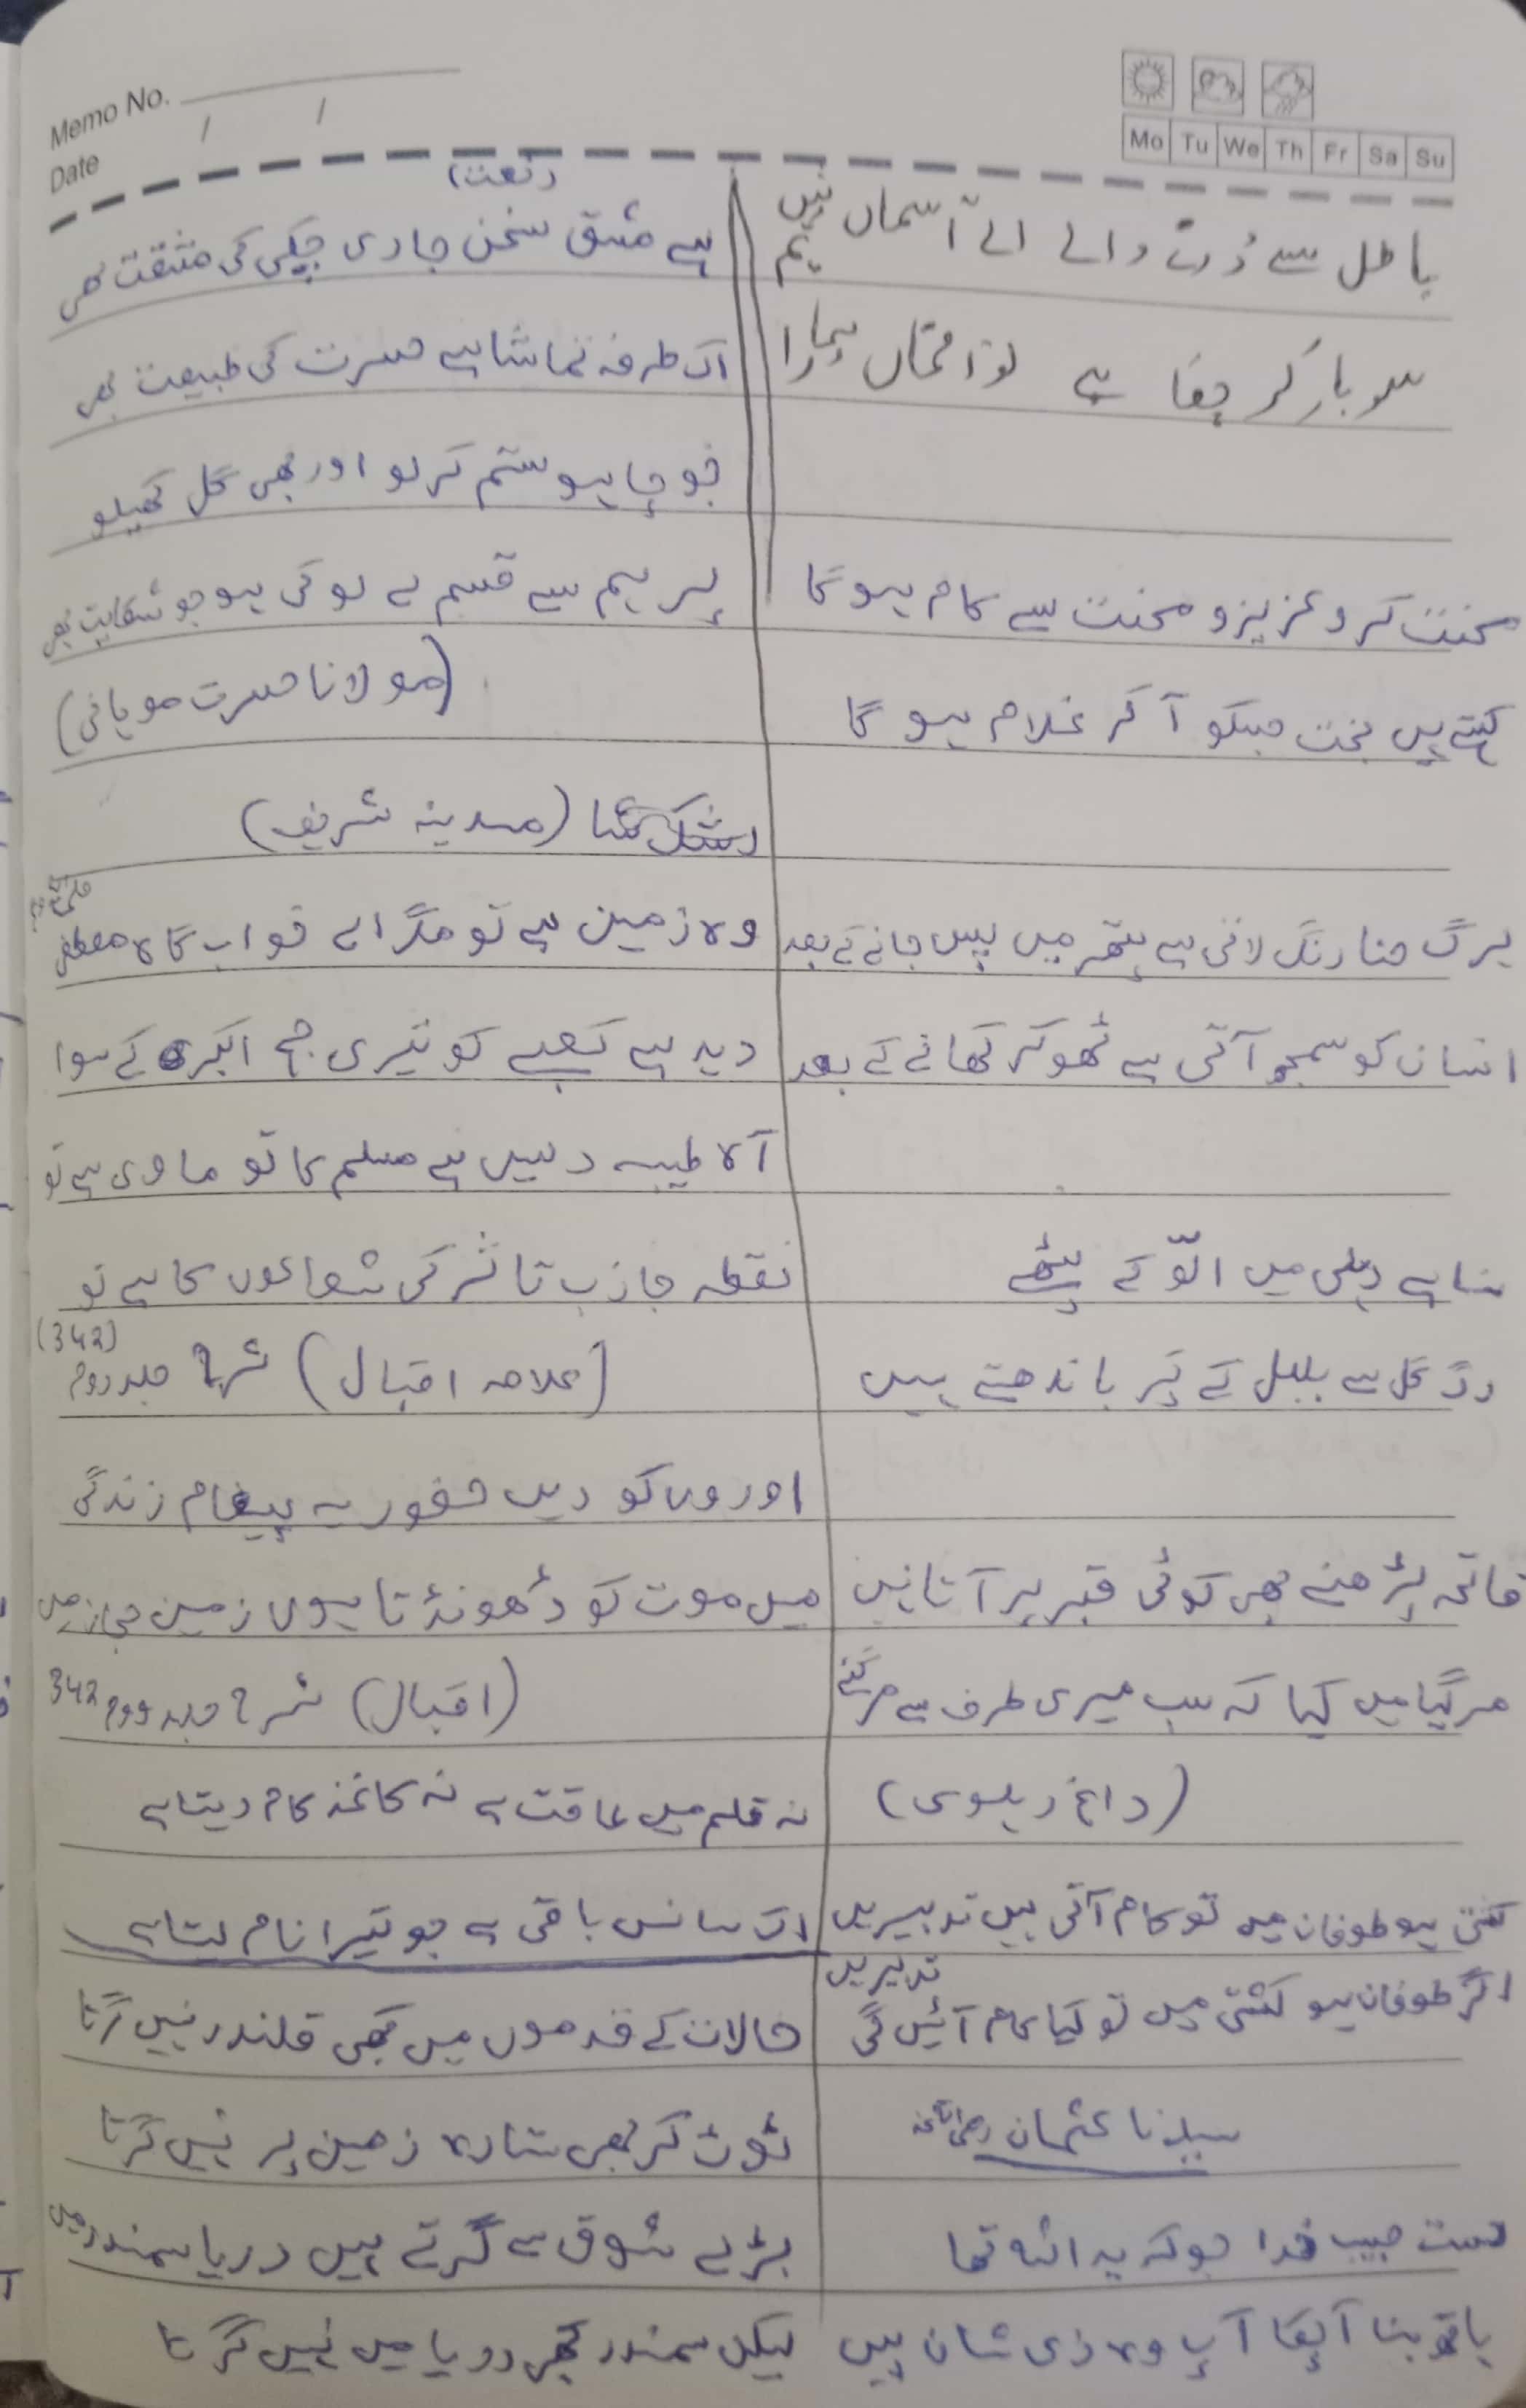 Memo No.
Date / /
Mo Tu We Th Fr Sa Su
باطل سے ڈرنے والے اے آسماں نہیں ہم
سو بار کر چکا ہے تو امتحاں ہمارا
محنت کرو عزیزو محنت سے کام ہوگا
کہتے ہیں بخت جسکو آ کر غلام ہو گا
برگ حنا رنگ لاتی ہے پتھر میں پس جانے کے بعد
انسان کو سمجھ آتی ہے ٹھوکر کھانے کے بعد
سنا ہے دہلی میں الّو کے پٹھے
رگ گل سے بلبل کے پَر باندھتے ہیں
فاتحہ پڑھنے بھی کوئی قبر پر آتا نہیں
مر گیا میں کیا کہ سب میری طرف سے مر گئے
(داغ دہلوی)
کشتی ہو طوفان میں تو کام آتی ہیں تدبیریں
اگر طوفان ہو کشتی میں تو کیا کام آئیں گی تدبیریں
سیدنا عثمان رضی اللہ عنہ
دست حبیب خدا جو کہ ید اللہ تھا
ہاتھ بنا آپکا آپ وہ ذی شان ہیں
(نعت)
ہے مشق سخن جاری چکی کی مشقت بھی
اک طرفہ تماشا ہے حسرت کی طبیعت بھی
جو چاہو ستم کر لو اور بھی گل کھیلو
پر ہم سے قسم لے لو کی ہو جو شکایت بھی
(مولانا حسرت موہانی)
(مدینہ شریف)
وہ زمین ہے تو مگر اے خواب گاہ مصطفی
دید ہے کعبے کو تیری حج اکبر کے سوا
آہ طیبہ دیس ہے مسلم کا تو ماوی ہے تو
نقطہ جاذب تاثر کی شعاعوں کا ہے تو
(علامہ اقبال) شرح جلد دوم (342)
اوروں کو دیں حضور یہ پیغام زندگی
میں موت کو ڈھونڈتا ہوں زمین حجاز میں
(اقبال) شرح جلد دوم 342
نہ قلم میں طاقت ہے نہ کاغذ کام دیتا ہے
اک سانس باقی ہے جو تیرا نام لیتا ہے
حالات کے قدموں میں کبھی قلندر نہیں گرتا
ٹوٹ کر بھی ستارہ زمین پر نہیں گرتا
بڑے شوق سے گرتے ہیں دریا سمندر میں
لیکن سمندر کبھی دریا میں نہیں گرتا